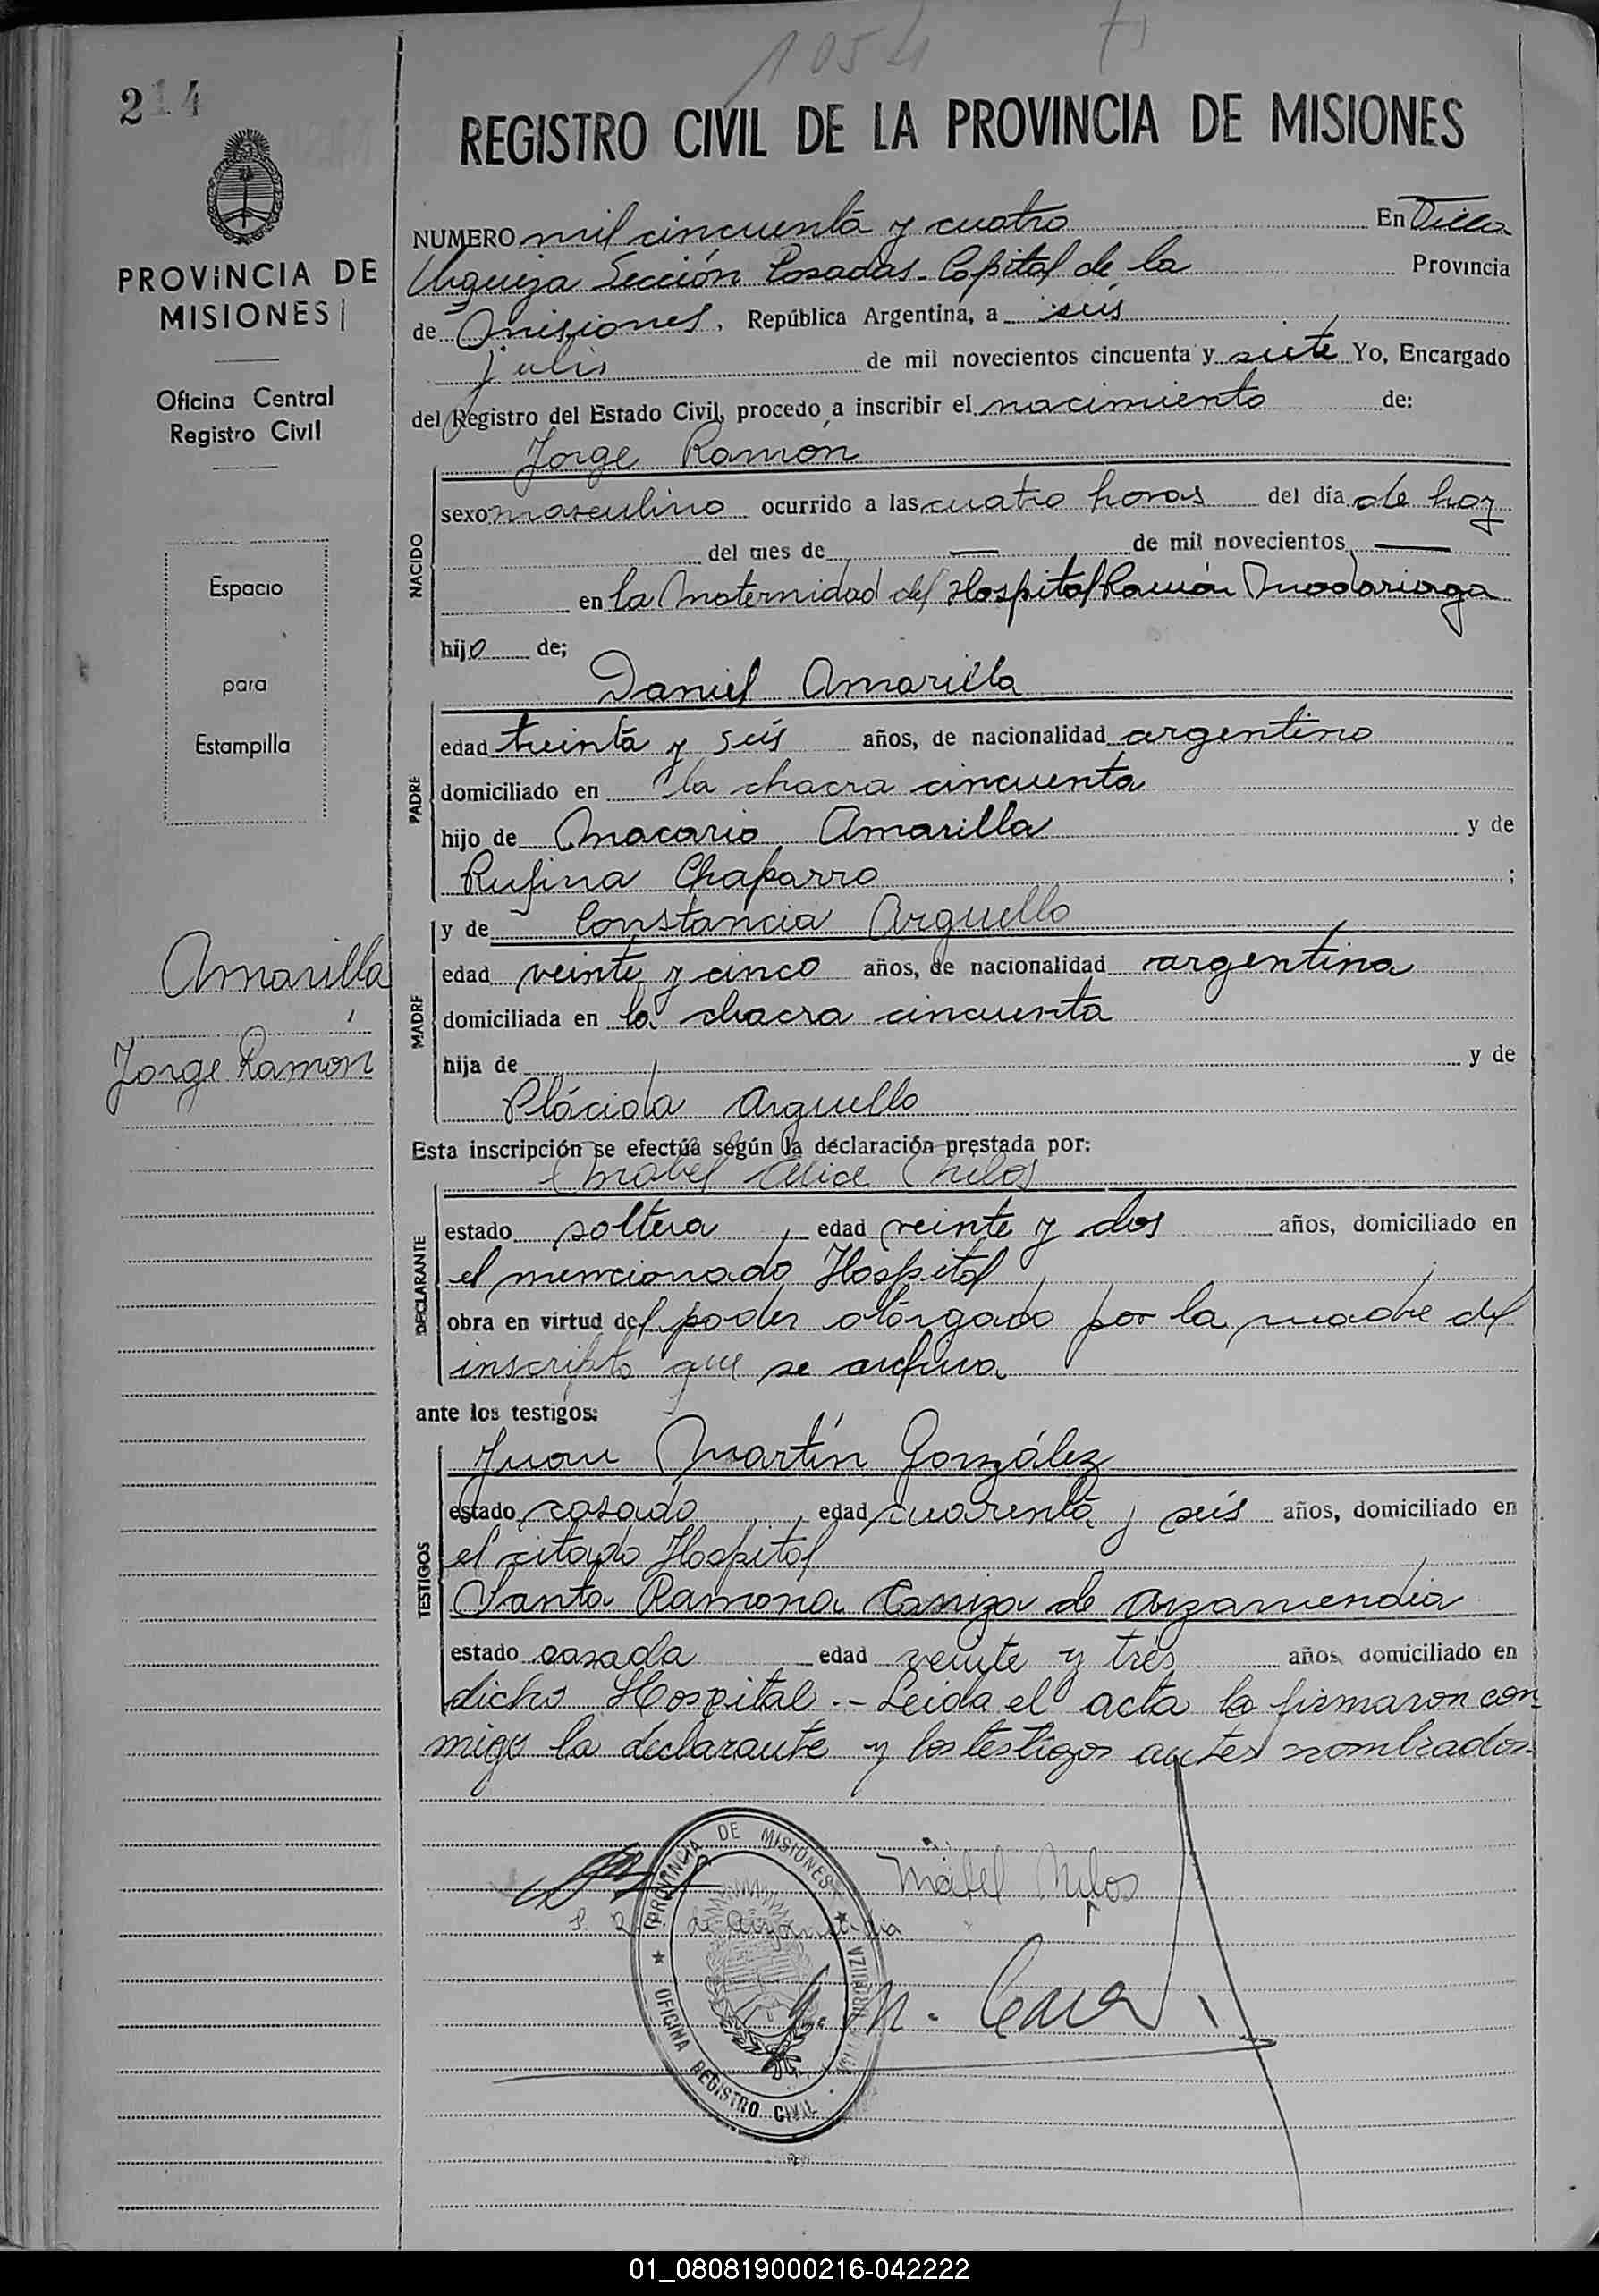 1054
214
REGISTRO CIVIL DE LA PROVINCIA DE MISIONES
PROVINCIA DE
MISIONES
Oficina Central
Registro Civil
Espacio
para
Estampilla
Amarilla
Jorge Ramón
NUMERO mil cincuenta y cuatro En Villa
Urquiza Sección Posadas - Capital de la Provincia
de Misiones, República Argentina, a seis
julio de mil novecientos cincuenta y siete Yo, Encargado
del Registro del Estado Civil, procedo a inscribir el nacimiento de:
Jorge Ramón
NACIDO
sexo masculino ocurrido a las cuatro horas del día de hoy
del mes de — de mil novecientos —
en la Maternidad del Hospital Ramón Madariaga
hijo de;
Daniel Amarilla
PADRE
edad treinta y seis años, de nacionalidad argentino
domiciliado en la chacra cincuenta
hijo de Macario Amarilla y de
Rufina Chaparro ;
y de Constancia Arguello
MADRE
edad veinte y cinco años, de nacionalidad argentina
domiciliada en la chacra cincuenta
hija de y de
Plácida Arguello
Esta inscripción se efectúa según la declaración prestada por:
Mabel Milos
DECLARANTE
estado soltera, edad veinte y dos años, domiciliado en
el mencionado Hospital
obra en virtud del poder otorgado por la madre del
inscripto que se archiva
ante los testigos:
Juan Martín González
TESTIGOS
estado casado, edad cuarenta y seis años, domiciliado en
el citado Hospital
Santa Ramona Caniza de Arzamendia
estado casada edad veinte y tres años domiciliado en
dicho Hospital.- Leida el acta la firmaron con-
migo la declarante y los testigos antes nombrados.
PROVINCIA DE MISIONES
OFICINA REGISTRO CIVIL
VILLA URQUIZA
Mabel Milos
de Arzamendia
01_080819000216-042222